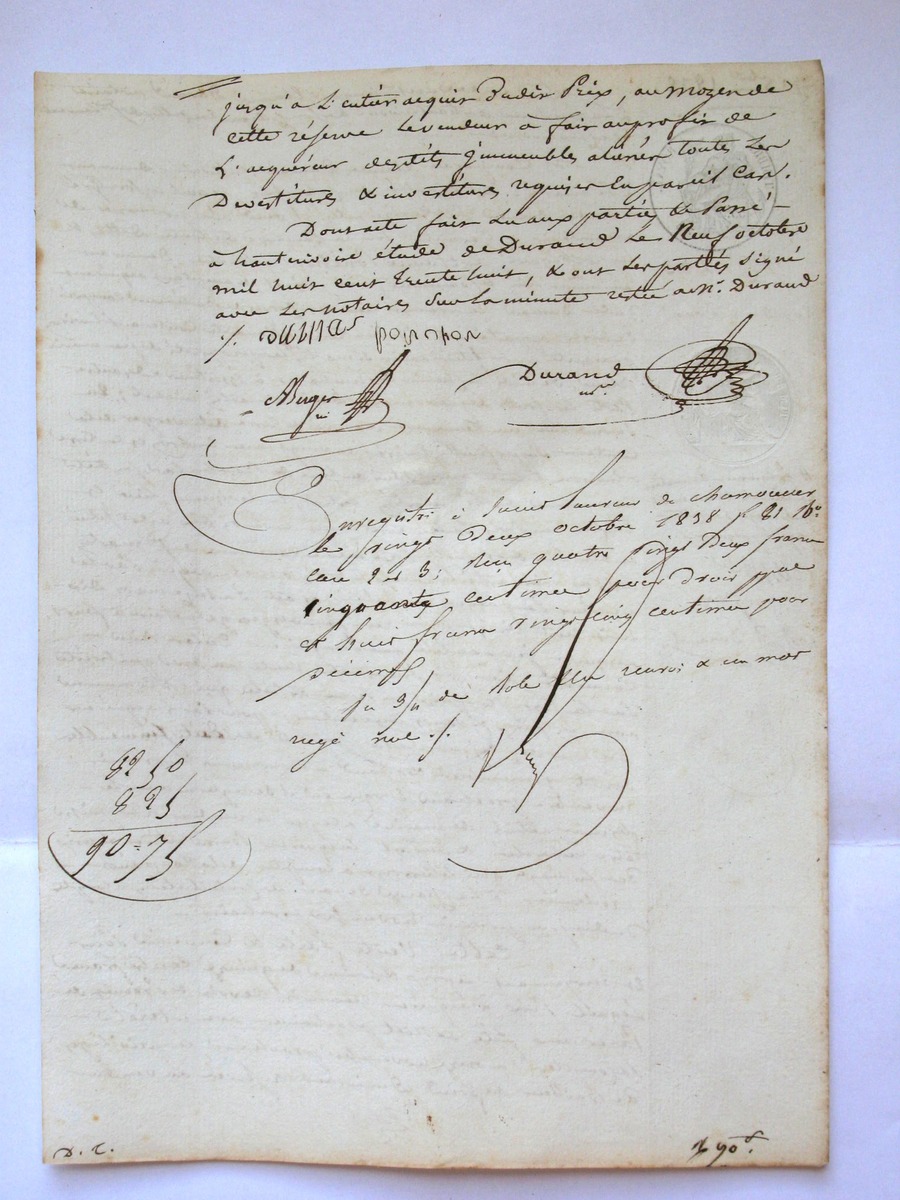 jusqu'a L'entier acquit Dudit Prix, au moyen de
cette réserve le vendeur a fait au profit de
L'acquéreur desdits immeubles aliénés toutes les
Devestitures & investitures requises en pareil cas.
Dont acte fait Lu aux parties & Passé
à hauterivoire étude de Durand Le Neuf octobre
mil huit cent trente huit, & ont les parties signé
avec Les notaires sur la minute restée a Me. Durand
./. dumas poinchon
Auger
Durand
Enregistré à Saint Laurent de chamousset
le vingt Deux octobre 1838 f° 81 Vo.
case 2 et 3; Reçu quatre vingt Deux francs
cinquante centimes pour Droit ppal
et huit francs vingt cinq centimes pour
Décime
renvoi & un mot
rayé nul ./.
82 50
8 25
90 = 75
D. C.
90 c.